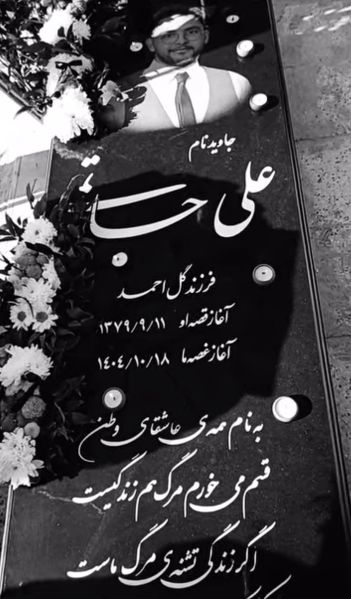 جاویدنام
علی حیاتی
فرزند گل احمد
آغاز قصه او ۱۳۷۹/۹/۱۱
آغاز غصه ما ۱۴۰۴/۱۰/۱۸
به نام همه‌ی عاشقای وطن
قسم می خورم مرگ هم زندگیست
اگر زندگی تشنه‌ی مرگ ماست